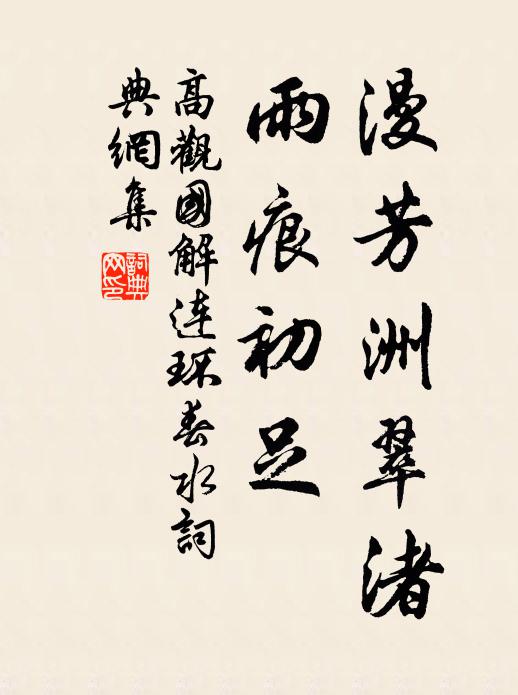 漫芳洲翠渚
雨痕初足
高觀國解連环春水詞
典網集
詞典
网印